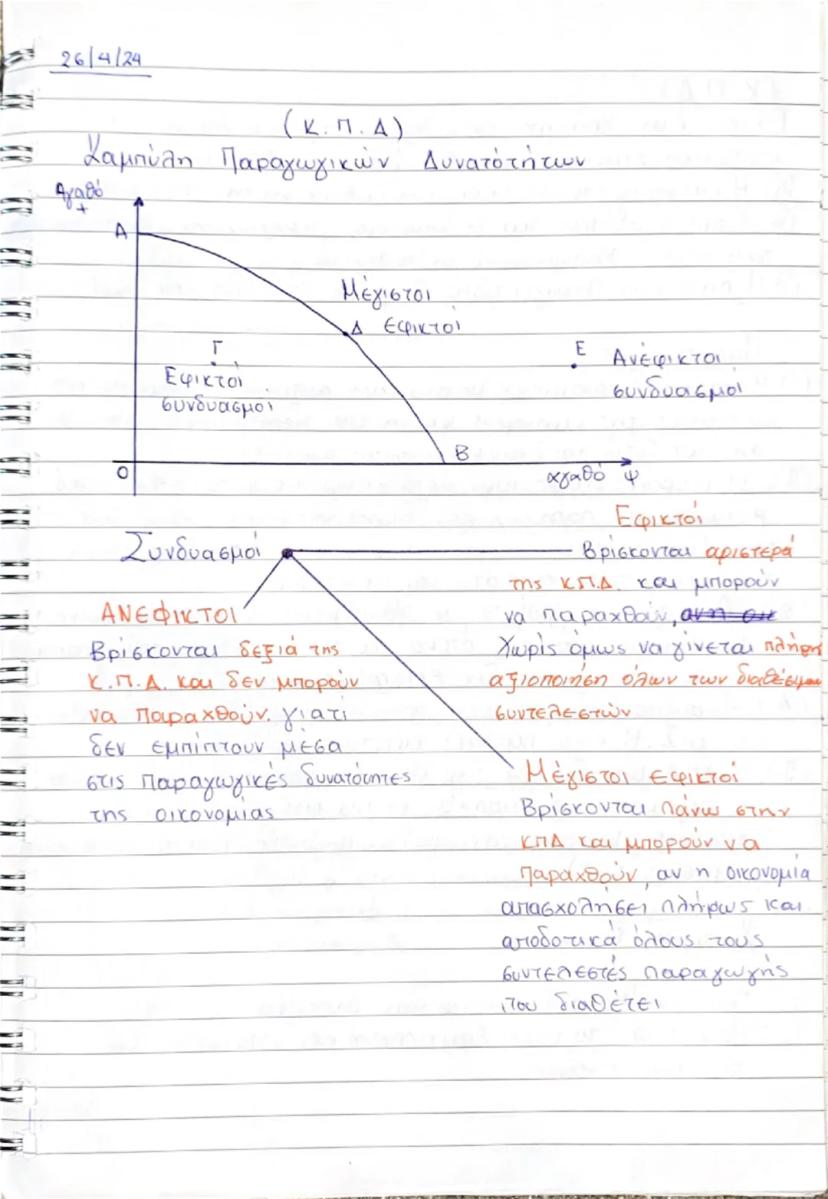 26/4/24
(Κ.Π.Δ)
Καμπύλη Παραγωγικών Δυνατότήτων
Αγαθό
+
Α
Μέγιστοι
Δ Εφικτοί
Γ
Εφικτοί
συνδυασμοί
Ε
Ανέφικτοι
συνδυασμοί
Β
Ο
αγαθό ψ
Συνδυασμοί
Εφικτοί
Βρίσκονται αριστερά
της Κ.Π.Δ. και μπορούν
να παραχθούν,
Χωρίς όμως να γίνεται πλήρης
αξιοποιήση όλων των διαθέσιμων
συντελεστών
ΑΝΕΦΙΚΤΟΙ
Βρίσκονται δεξιά της
Κ.Π.Δ. και δεν μπορούν
να Παραχθούν, γιατί
δεν εμπίπτουν μέσα
στις παραγωγικές δυνατότητες
της οικονομίας
Μέγιστοι εφικτοί
Βρίσκονται πάνω στην
ΚΠΔ και μπορούν να
παραχθούν, αν η οικονομία
απασχολήσει πλήρως και
αποδοτικά όλους τους
συντελεστές παραγωγής
που διαθέτει